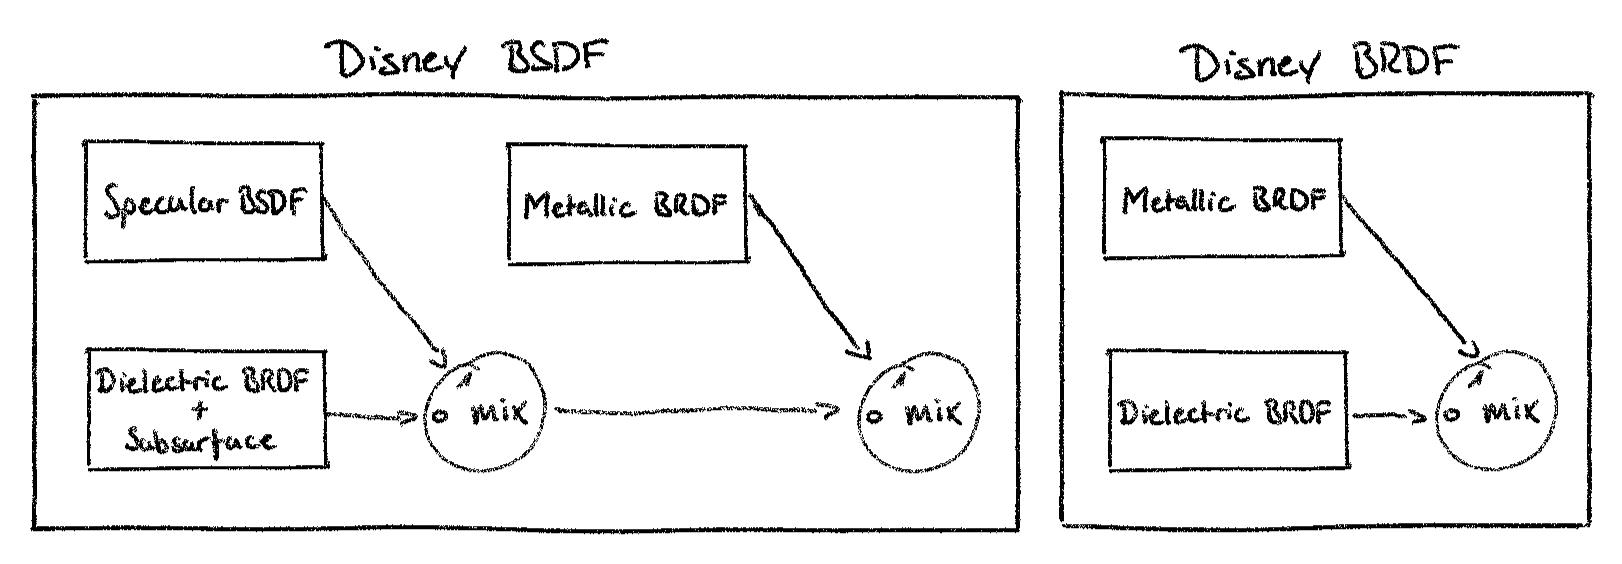 Disney BSDF
Specular BSDF
Metallic BRDF
Dielectric BRDF
+
Subsurface
0 mix 1
0 mix 1
Disney BRDF
Metallic BRDF
Dielectric BRDF
0 mix 1